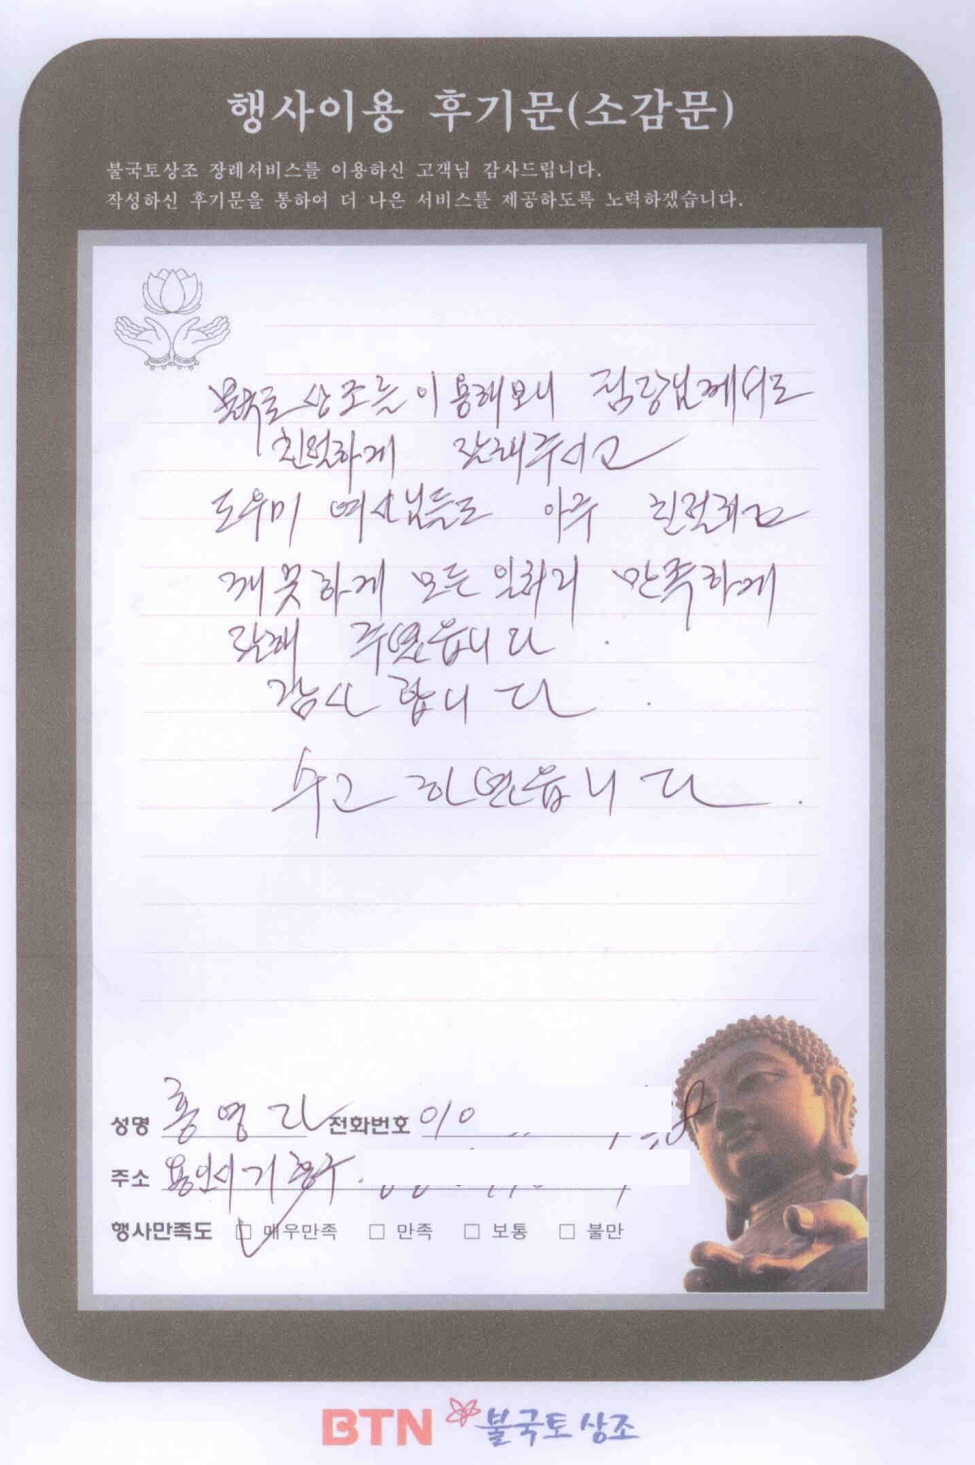 행사이용 후기문(소감문)
불국토상조 장례서비스를 이용하신 고객님 감사드립니다.
작성하신 후기문을 통하여 더 나은 서비스를 제공하도록 노력하겠습니다.
불국토 상조를 이용해보니 점장님께서도
친절하게 잘해주시고
도우미 여사님들도 아주 친절하고
깨끗하게 모든 일처리 만족하게
잘해 주셨읍니다.
감사합니다.
수고하셨읍니다.
성명 홍영 전화번호 010
주소 용인시 기흥구
행사만족도 매우만족 만족 보통 불만
BTN 불국토상조